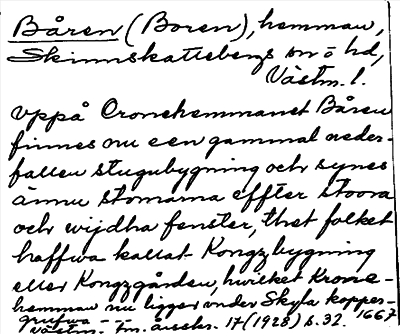 Båren (Boren), hemman,
Skinnskattebergs sn o hd,
Västm. l.
uppå Cronehemmanet Båren
finnes nu een gammal neder-
fallen stugubygning och synes
ännu stomarna effter stoora
och wijdha fenster, thet folket
haffwa kallat Kongzbygning
eller Kongzgården, hwilket Krone-
hemman nu ligger under Skyla kopper-
grufwa --- 1667
Västm. fm. årsskr. 17 (1928) s. 32.